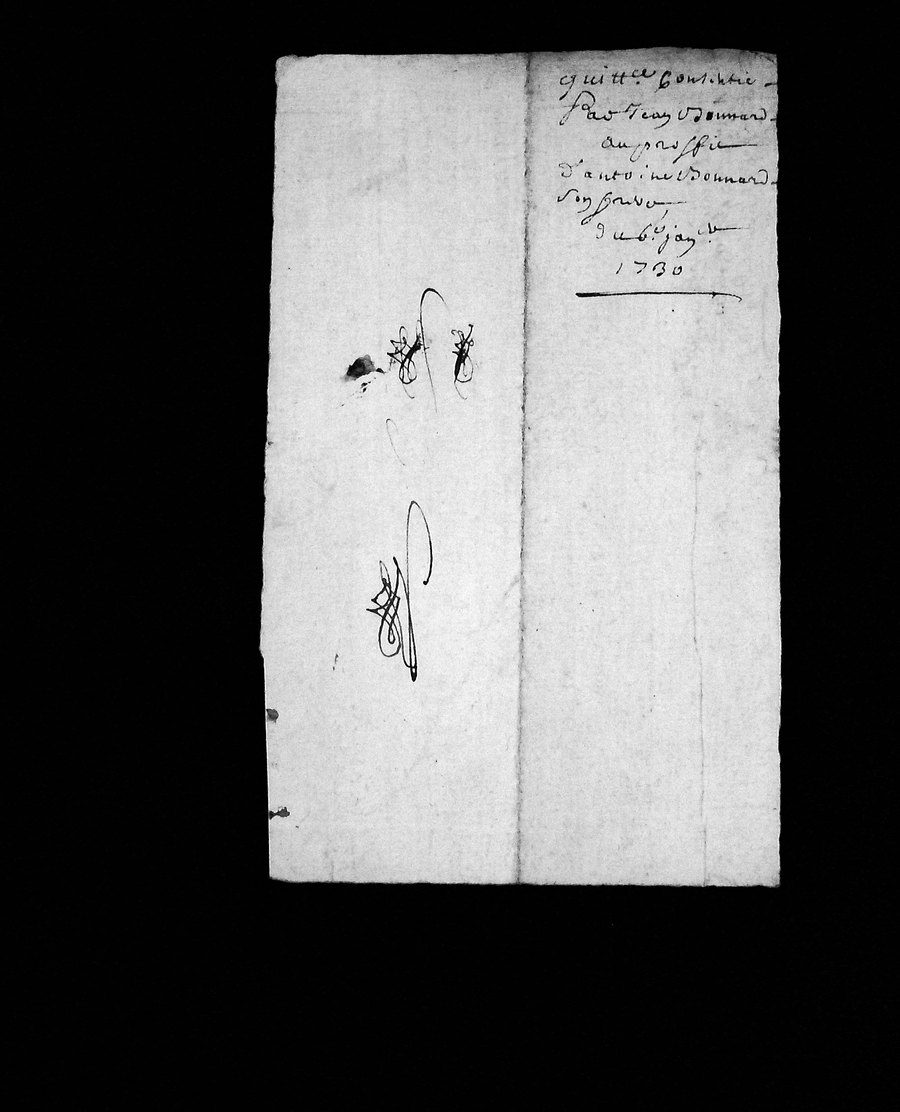 quitt.ce Consentie
Par Jean Bonnard
au proffit
d'antoine Bonnard
son frere
du 6.e jan.er
1730